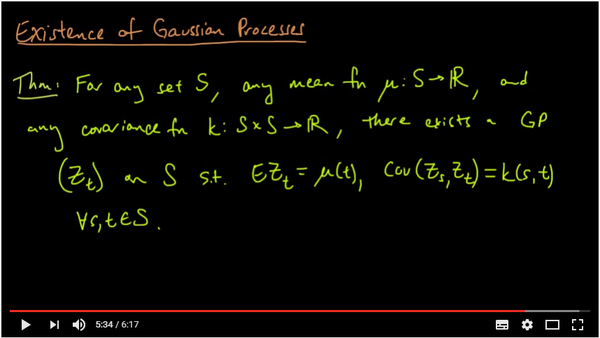 Existence of Gaussian Processes
Thm: For any set S, any mean fn μ: S→ℝ, and
any covariance fn k: S×S→ℝ, there exists a GP
(Z_t) on S s.t. EZ_t = μ(t), Cov(Z_s, Z_t) = k(s,t)
∀s,t∈S.
5:34 / 6:17